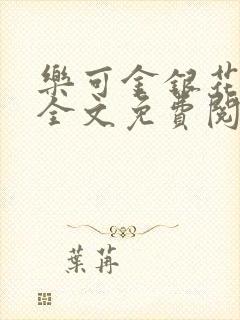 樂可金銀花
全文免費閱
葉苒